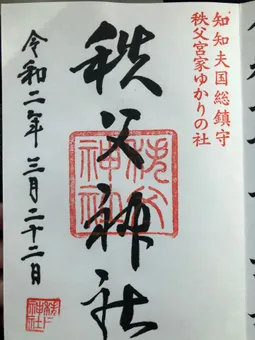 知知夫国総鎮守
秩父宮家ゆかりの社
秩父神社
秩父
神社
令和二年三月二十二日